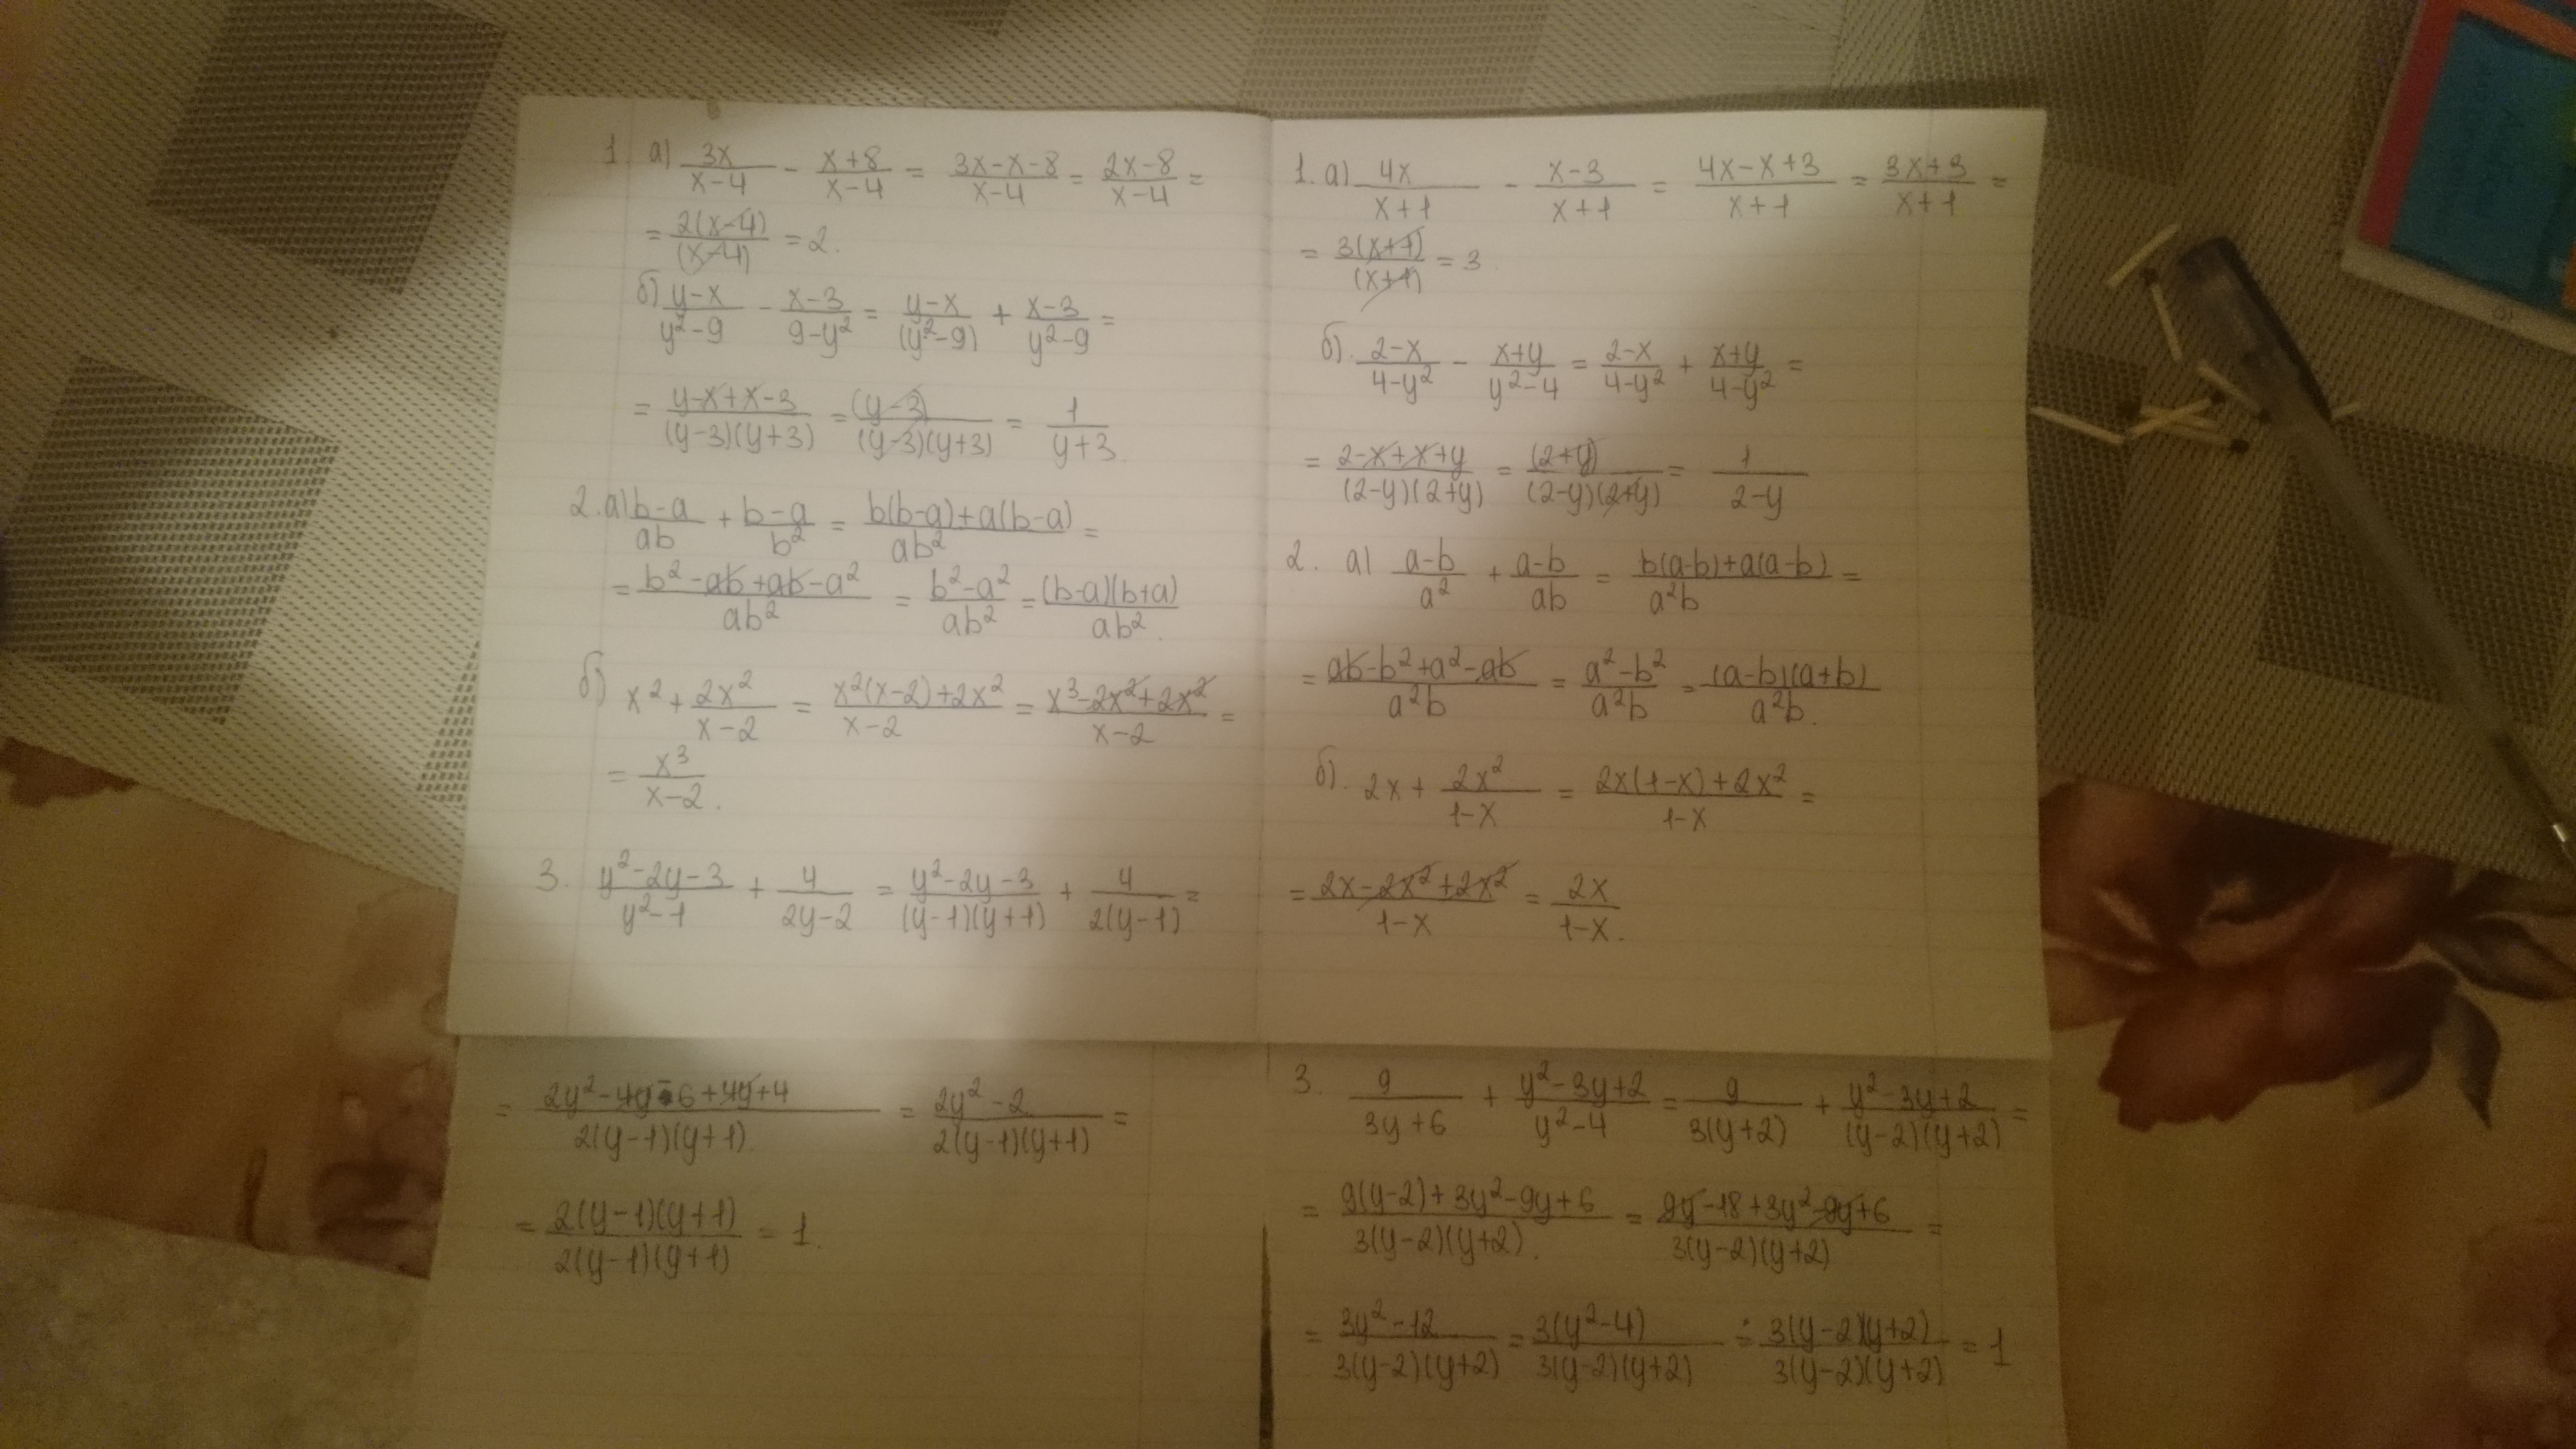 1 а) 3x/(x-4) - (x+8)/(x-4) = (3x-x-8)/(x-4) = (2x-8)/(x-4) =
= 2(x-4)/(x-4) = 2.
б) (y-x)/(y²-9) - (x-3)/(9-y²) = (y-x)/(y²-9) + (x-3)/(y²-9) =
= (y-x+x-3)/((y-3)(y+3)) = (y-3)/((y-3)(y+3)) = 1/(y+3).
2. а) (b-a)/ab + (b-a)/b² = (b(b-a)+a(b-a))/ab² =
= (b²-ab+ab-a²)/ab² = (b²-a²)/ab² = (b-a)(b+a)/ab².
б) x² + 2x²/(x-2) = (x²(x-2)+2x²)/(x-2) = (x³-2x²+2x²)/(x-2) =
= x³/(x-2).
3. (y²-2y-3)/(y²-1) + 4/(2y-2) = (y²-2y-3)/((y-1)(y+1)) + 4/(2(y-1)) =
= (2y²-4y-6+4y+4)/(2(y-1)(y+1)) = (2y²-2)/(2(y-1)(y+1)) =
= 2(y-1)(y+1)/(2(y-1)(y+1)) = 1.
1. а) 4x/(x+1) - (x-3)/(x+1) = (4x-x+3)/(x+1) = (3x+3)/(x+1) =
= 3(x+1)/(x+1) = 3
б). (2-x)/(4-y²) - (x+y)/(y²-4) = (2-x)/(4-y²) + (x+y)/(4-y²) =
= (2-x+x+y)/((2-y)(2+y)) = (2+y)/((2-y)(2+y)) = 1/(2-y)
2. а) (a-b)/a² + (a-b)/ab = (b(a-b)+a(a-b))/a²b =
= (ab-b²+a²-ab)/a²b = (a²-b²)/a²b = (a-b)(a+b)/a²b.
б). 2x + 2x²/(1-x) = (2x(1-x)+2x²)/(1-x) =
= (2x-2x²+2x²)/(1-x) = 2x/(1-x).
3. 9/(3y+6) + (y²-3y+2)/(y²-4) = 9/(3(y+2)) + (y²-3y+2)/((y-2)(y+2)) =
= (9(y-2)+3y²-9y+6)/(3(y-2)(y+2)) = (9y-18+3y²-9y+6)/(3(y-2)(y+2)) =
= (3y²-12)/(3(y-2)(y+2)) = 3(y²-4)/(3(y-2)(y+2)) = 3(y-2)(y+2)/(3(y-2)(y+2)) = 1